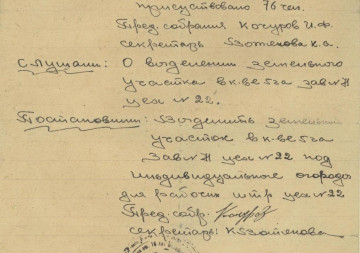 присутствовало 76 чел.
Пред. собрания Кочуров И.Ф.
секретарь К.А.
Слушали: О выделении земельного
участка в к-ве 5 га зав.
цех №22.
Постановили: Выделить земельный
участок в к-ве 5 га
Зав. цех №22 под
индивидуальные огороды
для рабочих цех №22
Пред. собр. Кочуров
секретарь: К.